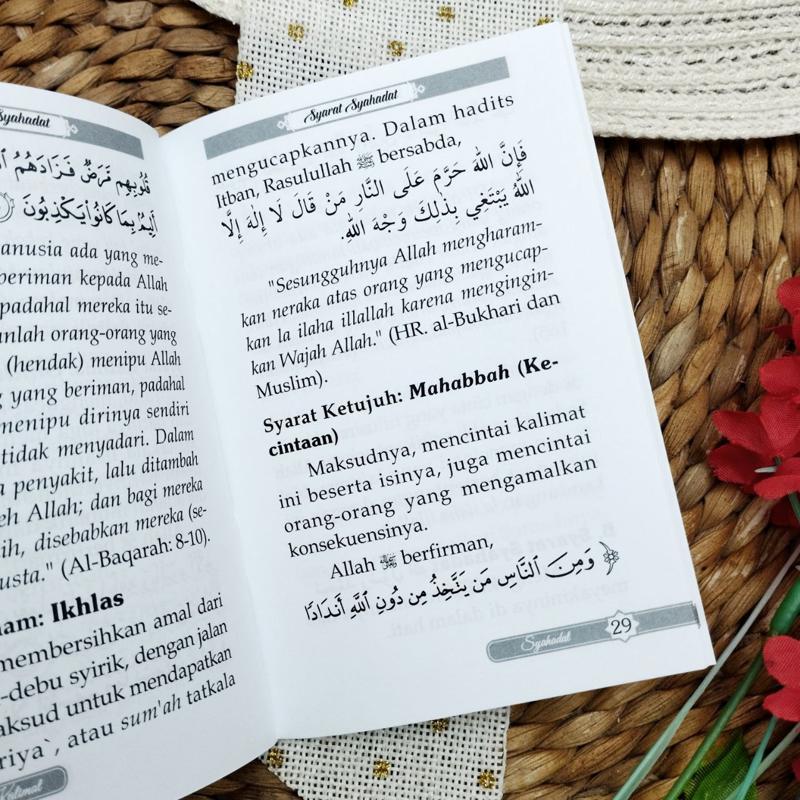 Syahadat
قُلُوبِهِم مَّرَضٌ فَزَادَهُمُ
أَلِيمٌۢ بِمَا كَانُوا۟ يَكْذِبُونَ
anusia ada yang me-
beriman kepada Allah
padahal mereka itu se-
anlah orang-orang yang
(hendak) menipu Allah
g yang beriman, padahal
menipu dirinya sendiri
tidak menyadari. Dalam
a penyakit, lalu ditambah
eh Allah; dan bagi mereka
ih, disebabkan mereka (se-
usta." (Al-Baqarah: 8-10).
nam: Ikhlas
membersihkan amal dari
-debu syirik, dengan jalan
aksud untuk mendapatkan
riya`, atau sum'ah tatkala
Kalimat
Syarat Syahadat
mengucapkannya. Dalam hadits
Itban, Rasulullah ﷺ bersabda,
فَإِنَّ اللهَ حَرَّمَ عَلَى النَّارِ مَنْ قَالَ لَا إِلٰهَ إِلَّا
اللهُ يَبْتَغِي بِذٰلِكَ وَجْهَ اللهِ.
"Sesungguhnya Allah mengharam-
kan neraka atas orang yang mengucap-
kan la ilaha illallah karena mengingin-
kan Wajah Allah." (HR. al-Bukhari dan
Muslim).
Syarat Ketujuh: Mahabbah (Ke-
cintaan)
Maksudnya, mencintai kalimat
ini beserta isinya, juga mencintai
orang-orang yang mengamalkan
konsekuensinya.
Allah ﷻ berfirman,
﴿ وَمِنَ ٱلنَّاسِ مَن يَتَّخِذُ مِن دُونِ ٱللَّهِ أَندَادًا
Syahadat 29